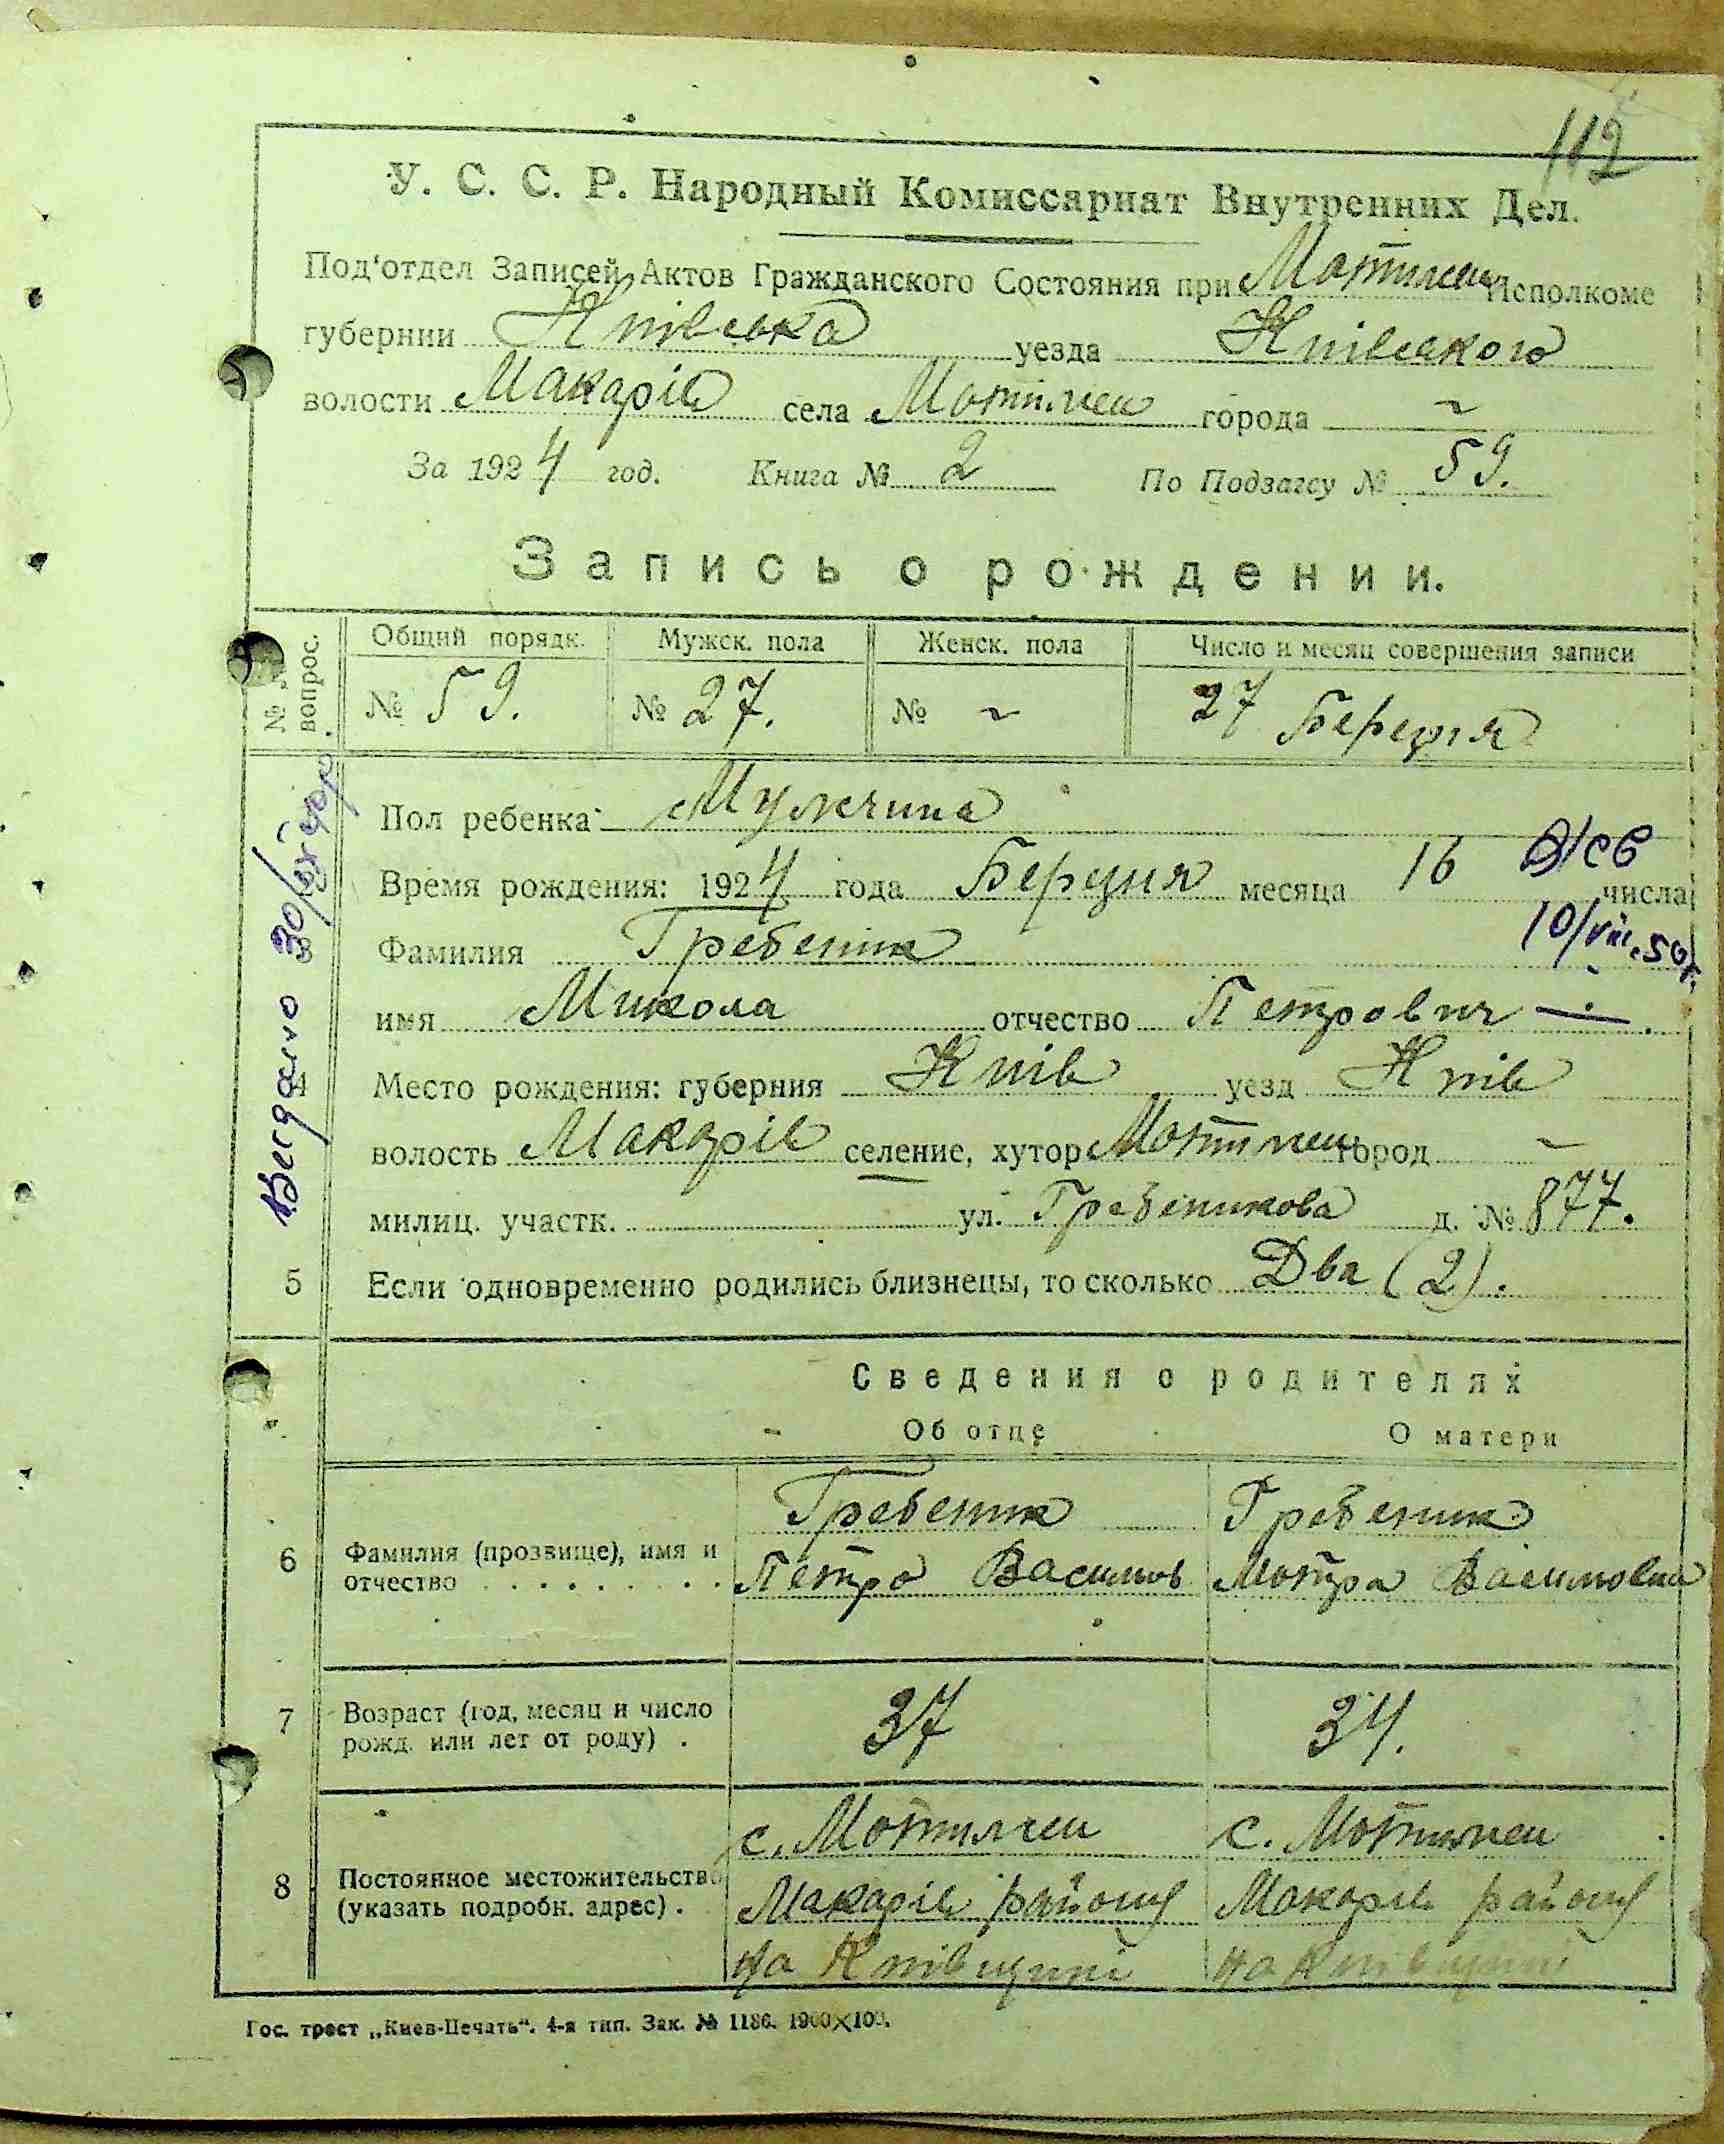 112
У. С. С. Р. Народный Комиссариат Внутренних Дел.
Под'отдел Записей Актов Гражданского Состояния при Мотижен Исполкоме
губернии Київська уезда Київського
волости Макарів села Мотижен города ~
За 1924 год. Книга № 2 По Подзагсу № 59.
Запись о рождении.
вопрос. Общий порядк. Мужск. пола Женск. пола Число и месяц совершения записи
№ 59. № 27. № ~ 27 Березня
Пол ребенка Мужчина
Время рождения: 1924 года Березня месяца 16 числа
10/VIII.50г.
3 Фамилия Гребеник
имя Микола отчество Петрович
4 Место рождения: губерния Київ уезд Київ
волость Макарів селение, хутор Мотижен город ~
милиц. участк. ул. Гребеникова д. № 877.
5 Если одновременно родились близнецы, то сколько Два (2).
Сведения о родителях
Об отце О матери
Гребеник Гребеник
6 Фамилия (прозвище), имя и отчество Петро Васильов Мотря Василовна
7 Возраст (год, месяц и число рожд. или лет от роду) . 37 34.
с. Мотижен с. Мотижен
8 Постоянное местожительство (указать подробн. адрес) . Макарів району Макарів району
на Київщині на Київщині
Гос. трест „Киев-Печать“. 4-я тип. Зак. № 1186. 1900×100.